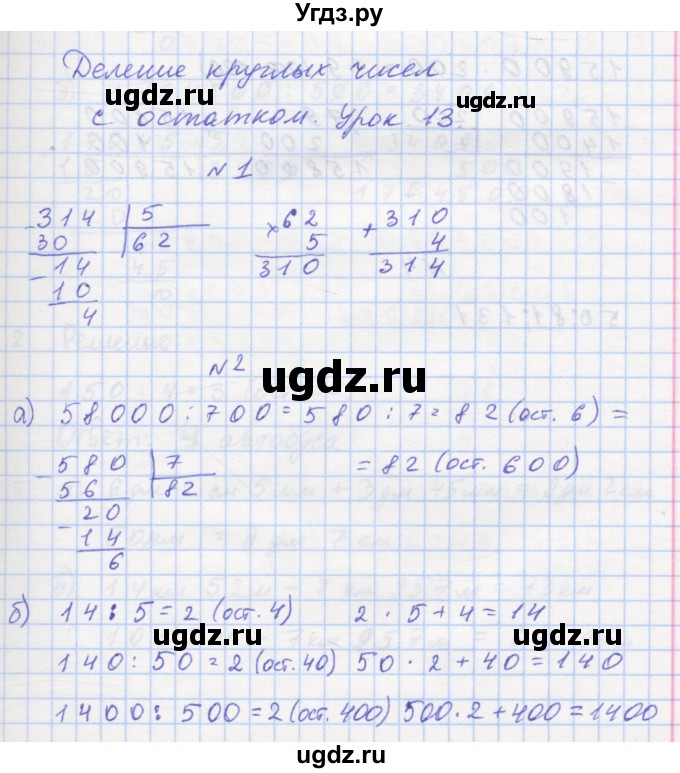 Угдз.ру
Деление круглых чисел
с остатком. Урок 13.
ugdz.ru ugdz.ru
№1
- 314 | 5
30 62
- 14
10
4
× 62
5
310
+ 310
4
314
№2
ugdz.ru
а) 58000 : 700 = 580 : 7 = 82 (ост. 6) =
= 82 (ост. 600)
- 580 | 7
56 82
- 20
14
6
ugdz.ru
б) 14 : 5 = 2 (ост. 4) 2 · 5 + 4 = 14
ugdz.ru ugdz.ru
140 : 50 = 2 (ост. 40) 50 · 2 + 40 = 140
1400 : 500 = 2 (ост. 400) 500 · 2 + 400 = 1400
ugdz.ru